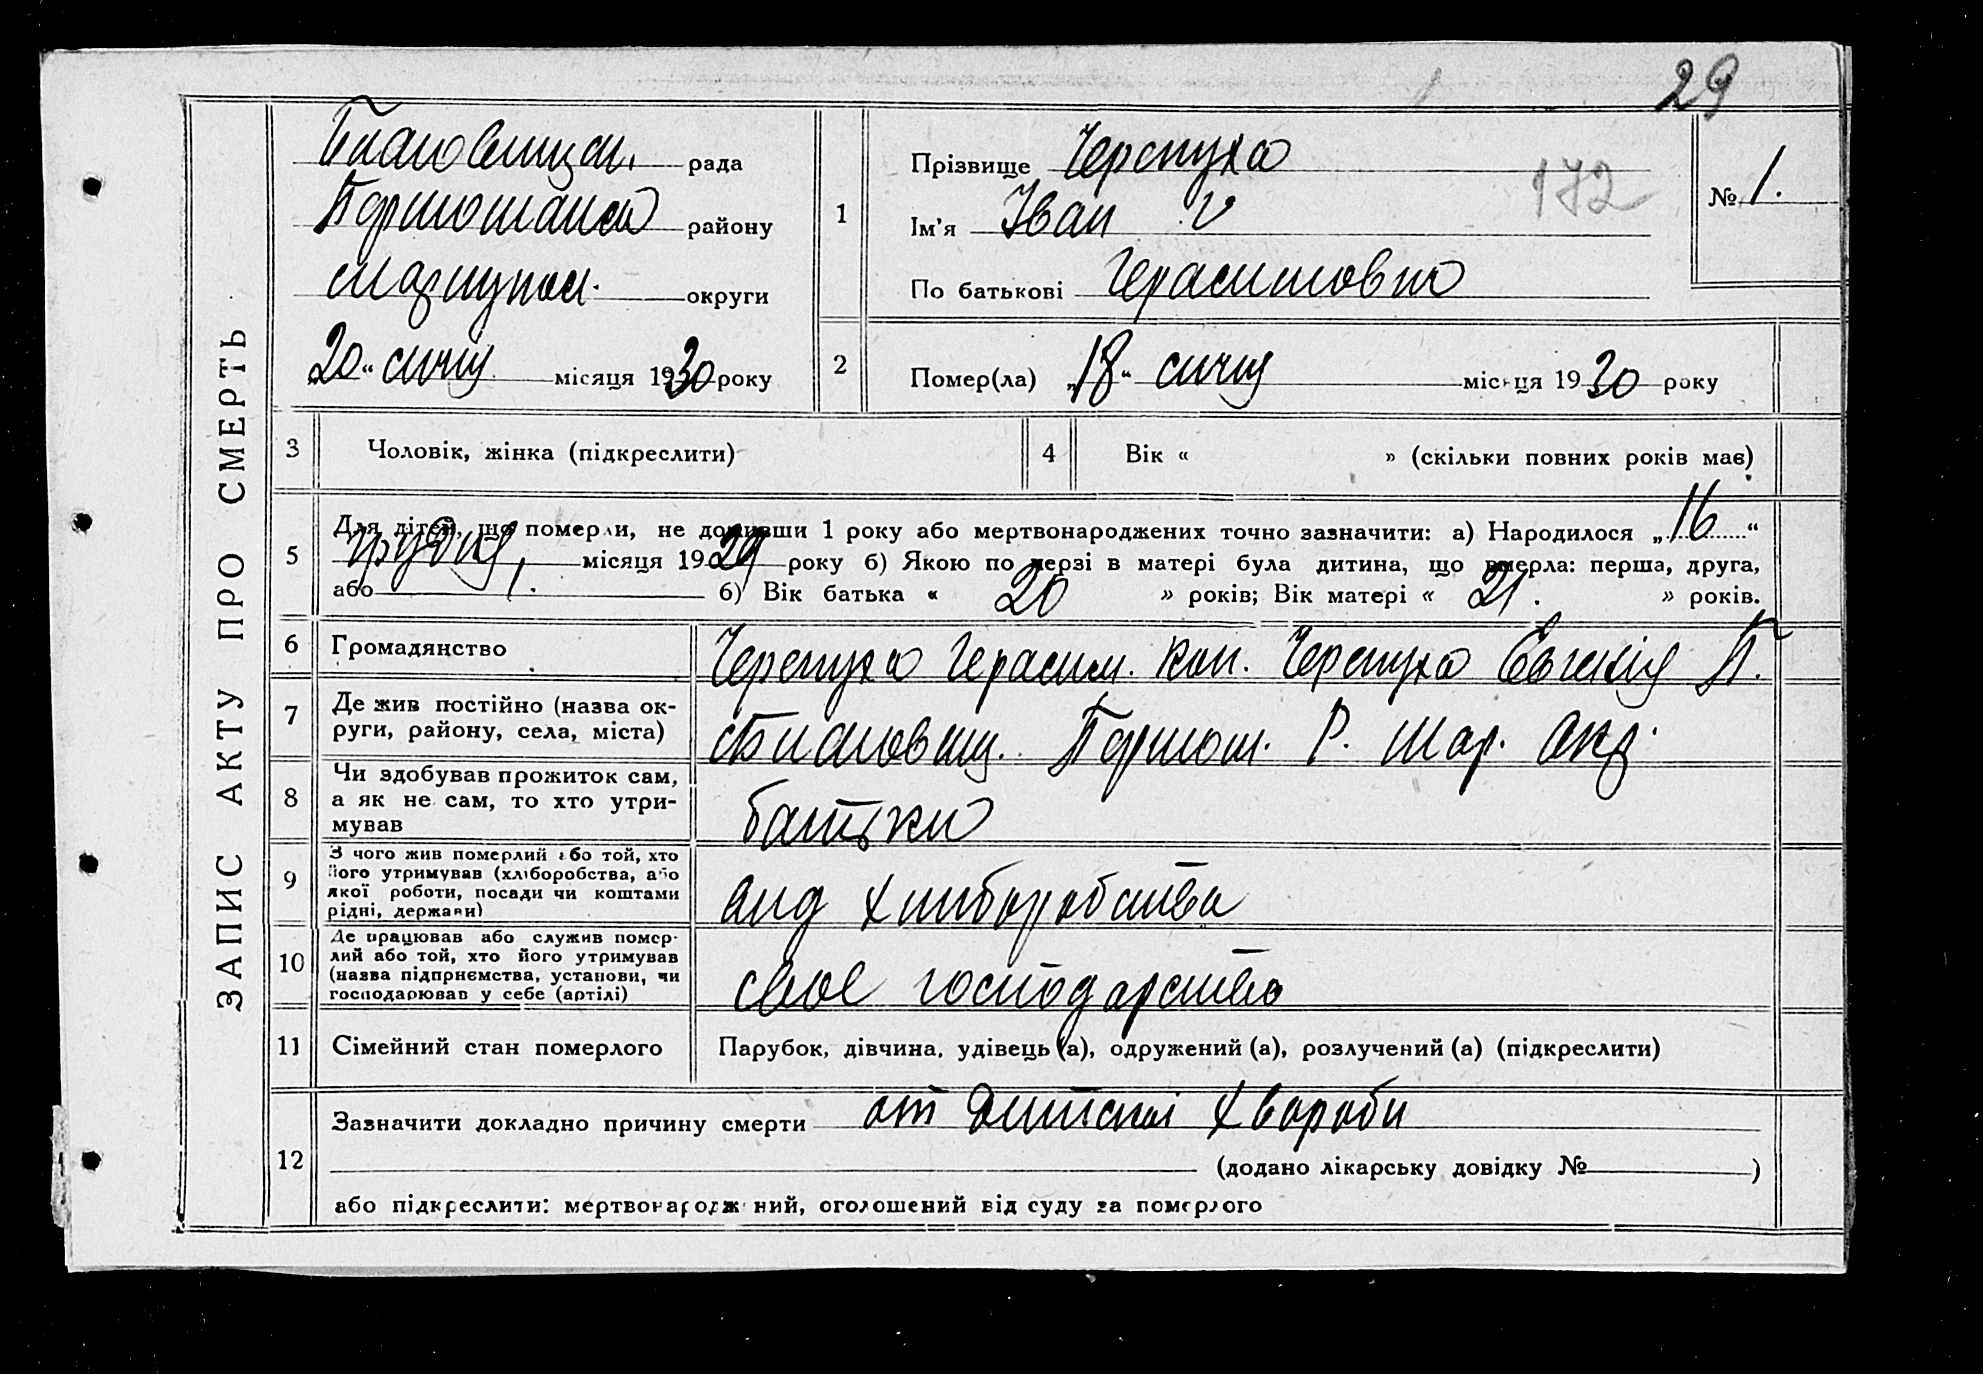 29
172
ЗАПИС АКТУ ПРО СМЕРТЬ
рада
району
Маріупол. округи
20 " січня місяця 1930 року
1
Прізвище Черепуха
Ім'я Іван
По батькові Герасимович
№ 1.
2
Помер(ла) „18" січня місяця 1930 року
3 Чоловік, жінка (підкреслити)
4 Вік « » (скільки повних років має)
5
Для дітей, що померли, не доживши 1 року або мертвонароджених точно зазначити: а) Народилося „16"
грудня, місяця 1929 року б) Якою по черзі в матері була дитина, що вмерла: перша, друга,
або б) Вік батька « 20 » років; Вік матері « 21. » років.
6 Громадянство
Черепуха Герасим. Черепуха Євгенія П.
7 Де жив постійно (назва ок-
руги, району, села, міста)
Р. Мар. окр.
8 Чи здобував прожиток сам,
а як не сам, то хто утри-
мував
батьки
9 З чого жив померлий або той, хто
його утримував (хліборобства, або
якої роботи, посади чи коштами
рідні, держави)
від хліборобства
10 Де працював або служив помер-
лий або той, хто його утримував
(назва підприємства, установи, чи
господарював у себе (артілі)
своє господарство
11 Сімейний стан померлого
Парубок, дівчина, удівець (а), одружений (а), розлучений (а) (підкреслити)
12
Зазначити докладно причину смерти от дитскої хвороби
(додано лікарську довідку № )
або підкреслити: мертвонароджений, оголошений від суду за померлого